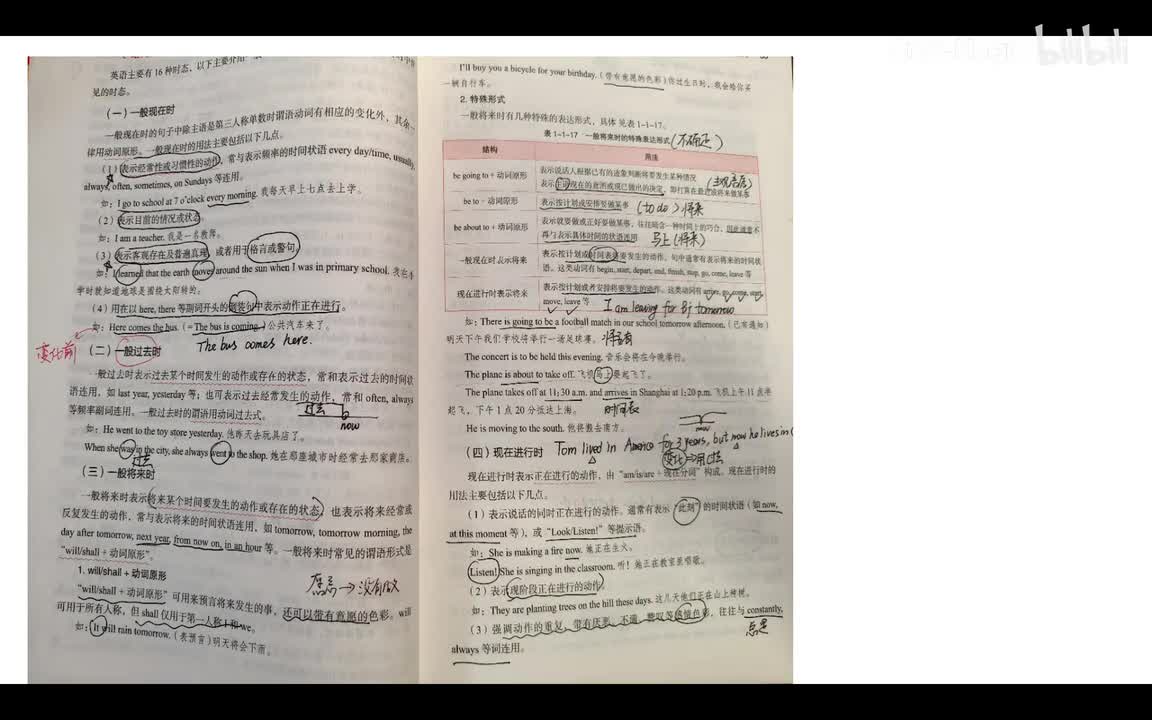 bilibili
英语主要有 16 种时态，以下主要介绍
见的时态。
（一）一般现在时
一般现在时的句子中除主语是第三人称单数时谓语动词有相应的变化外，其余
律用动词原形。一般现在时的用法主要包括以下几点。
（1）表示经常性或习惯性的动作，常与表示频率的时间状语 every day/time, usually,
always, often, sometimes, on Sundays 等连用。
如：I go to school at 7 o'clock every morning. 我每天早上七点去上学。
（2）表示目前的情况或状态
如：I am a teacher. 我是一名教师。
（3）表示客观存在及普遍真理，或者用于格言或警句。
如：I learned that the earth moves around the sun when I was in primary school. 我在小
学时就知道地球是围绕太阳转的。
（4）用在以 here, there 等副词开头的倒装句中表示动作正在进行。
如：Here comes the bus.（= The bus is coming.）公共汽车来了。
The bus comes here.
变化前
（二）一般过去时
一般过去时表示过去某个时间发生的动作或存在的状态，常和表示过去的时间状
语连用，如 last year, yesterday 等；也可表示过去经常发生的动作，常和 often, always
等频率副词连用。一般过去时的谓语用动词过去式。
过去
now
如：He went to the toy store yesterday. 他昨天去玩具店了。
When she was in the city, she always went to the shop. 她在那座城市时经常去那家商店。
过去
（三）一般将来时
一般将来时表示将来某个时间要发生的动作或存在的状态，也表示将来经常或
反复发生的动作，常与表示将来的时间状语连用，如 tomorrow, tomorrow morning, the
day after tomorrow, next year, from now on, in an hour 等。一般将来时常见的谓语形式是
“will/shall + 动词原形”。
1. will/shall + 动词原形
→没有做
“will/shall + 动词原形”可用来预言将来发生的事，还可以带有意愿的色彩。will
可用于所有人称，但 shall 仅用于第一人称 I 和 we。
如：It will rain tomorrow.（表预言）明天将会下雨。
I'll buy you a bicycle for your birthday.（带有意愿的色彩）你过生日时，我会给你买
一辆自行车。
2. 特殊形式
一般将来时有几种特殊的表达形式，具体见表 1-1-17。
表 1-1-17 一般将来时的特殊表达形式
结构 用法
be going to + 动词原形 表示说话人根据已有的迹象判断将要发生某种情况
表示主动现在的意图或现已做出的决定，即打算在最近或将来做某事
be to + 动词原形 表示按计划或安排要做某事 （to do）将来
be about to + 动词原形 表示就要做或正好要做某事，往往暗含一种时间上的巧合，因此通常不
再与表示具体时间的状语连用 马上（将来）
一般现在时表示将来 表示按计划或时间表要发生的动作。句中通常有表示将来的时间状
语。这类动词有 begin, start, depart, end, finish, stop, go, come, leave 等
现在进行时表示将来 表示按计划或者安排将要发生的动作。这类动词有 arrive, go, come, start,
move, leave 等 I am leaving for Bj tomorrow
如：There is going to be a football match in our school tomorrow afternoon.（已有通知）
明天下午我们学校将举行一场足球赛。 将会有
The concert is to be held this evening. 音乐会将在今晚举行。
The plane is about to take off. 飞机马上要起飞了。
The plane takes off at 11:30 a.m. and arrives in Shanghai at 1:20 p.m. 飞机上午 11 点半
起飞，下午 1 点 20 分抵达上海。 时间表
He is moving to the south. 他将搬去南方。
now
（四）现在进行时 Tom lived in America for 3 years, but now he lives in
变化→用过去
现在进行时表示正在进行的动作，由“am/is/are + 现在分词”构成。现在进行时的
用法主要包括以下几点。
（1）表示说话的同时正在进行的动作。通常有表示“此刻”的时间状语（如 now,
at this moment 等），或“Look/Listen!”等提示语。
如：She is making a fire now. 她正在生火。
Listen! She is singing in the classroom. 听！她正在教室里唱歌。
（2）表示现阶段正在进行的动作
如：They are planting trees on the hill these days. 这几天他们正在山上种树。
（3）强调动作的重复，带有厌恶、不满、赞叹等感情色彩，往往与 constantly,
总是
always 等词连用。